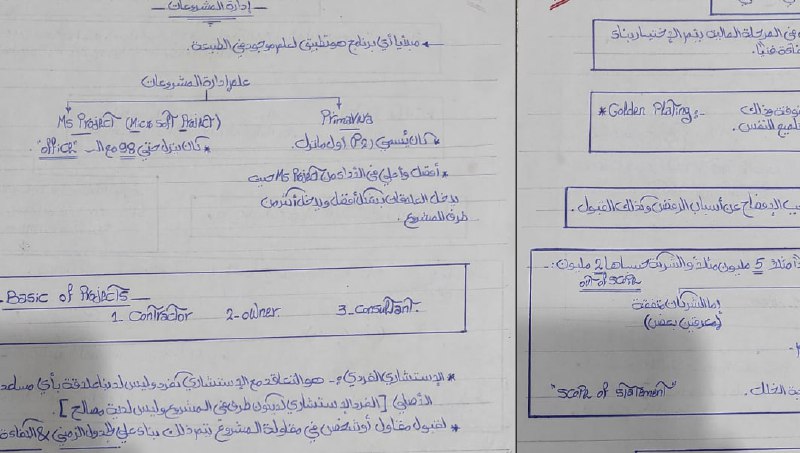 — إدارة المشروعات —
* مبدئيا أي برنامج هو تطبيق لعلم موجود في الطبيعة.
علم إدارة المشروعات
MS Project (Microsoft Project)
Primavera
* كان ينزل حتى 98 مع الـ "office"
كان يُسمى (P2) أول ما نزل.
* أفضل وأعلى في الأداء من MS Project حيث
يدخل العلاقات بشكل أفضل ويدخل أكثر من
طرف للمشروع.
Basic of Projects
1- Contractor 2- owner 3- Consultant.
* الإستشاري الفردي:- هو التعاقد مع الإستشاري كفرد وليس لدينا علاقة بأي مساعد
الأصلي [الفرد الإستشاري لا يكون طرف في المشروع وليس لدية مصالح].
* لقبول مقاول أو شخص في مقاولة المشروع يتم ذلك بناء على الجدول الزمني & الكفاءة
في المرحلة المالية يتم الإختيار بناء
فنيًا.
* Golden Plating:-
وذلك
للنفس.
الإفصاح عن أسباب الرفض وكذلك القبول.
مثلا 5 مليون مثلا والشركة حسباها 2 مليون:-
out of scope
إما الشركات متفقة
(معرفين بعض)
"scope of statement"
الخلل.